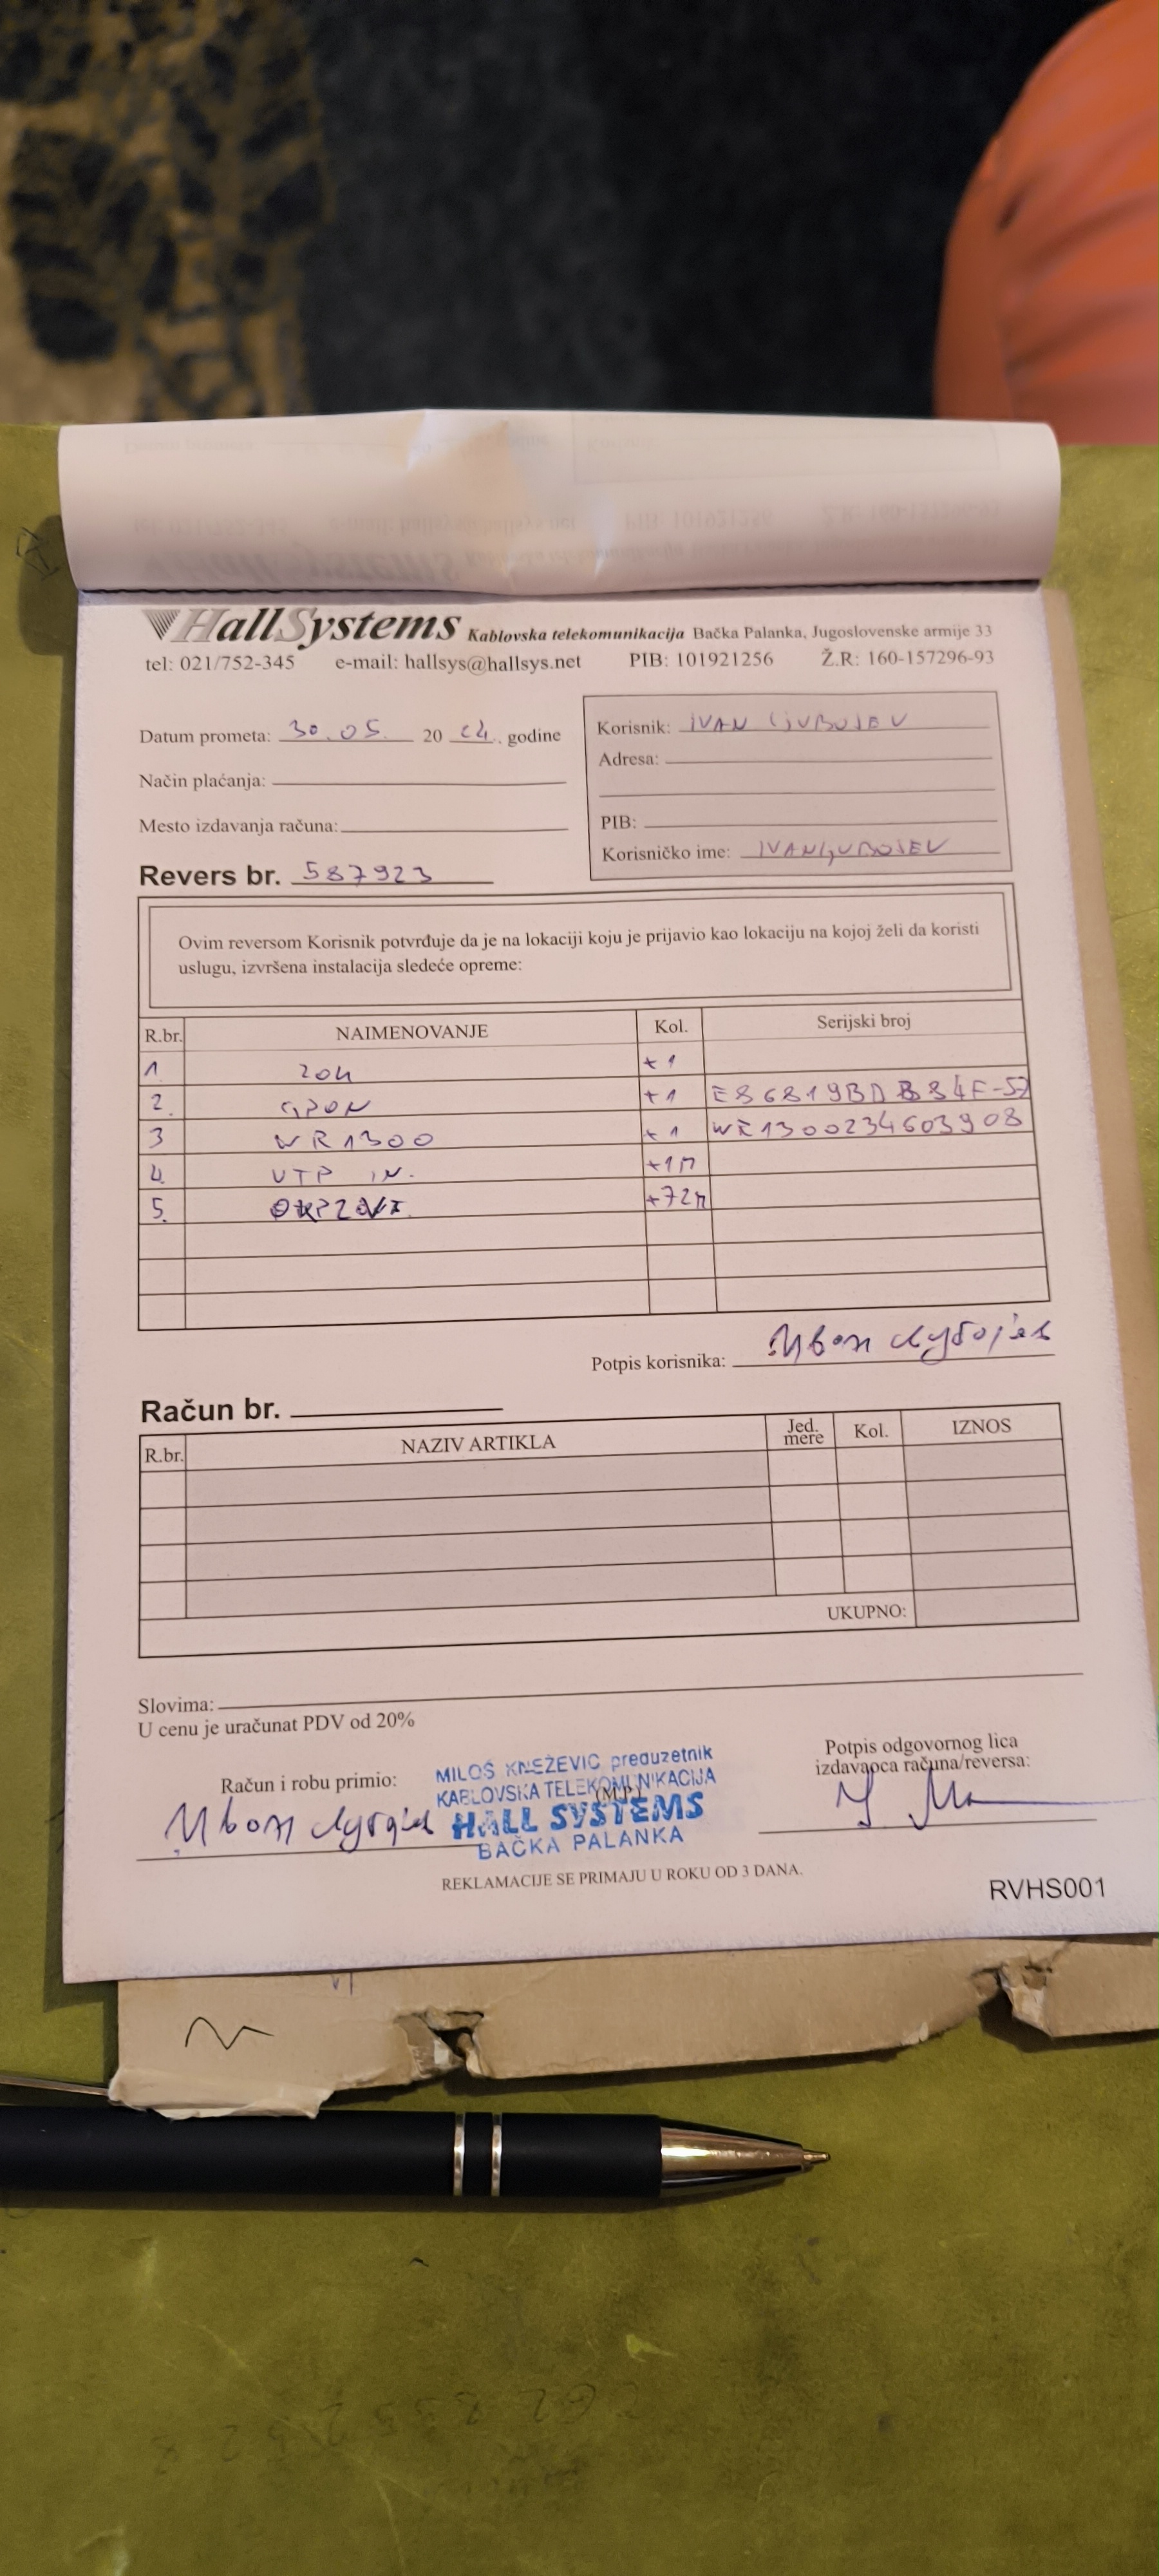 HallSystems Kablovska telekomunikacija Bačka Palanka, Jugoslovenske armije 33
tel: 021/752-345 e-mail: hallsys@hallsys.net PIB: 101921256 Ž.R: 160-157296-93
Datum prometa: 30.05. 2024. godine
Način plaćanja:
Mesto izdavanja računa:
Revers br. 587923
Korisnik: IVAN LJUBOJEV
Adresa:
PIB:
Korisničko ime: IVANLJUBOJEV
Ovim reversom Korisnik potvrđuje da je na lokaciji koju je prijavio kao lokaciju na kojoj želi da koristi
uslugu, izvršena instalacija sledeće opreme:
R.br. NAIMENOVANJE Kol. Serijski broj
1 +1
2. GPON +1
3 WR1300 +1 WR1300234603908
4 UTP IN. +1m
5. +72m
Potpis korisnika: Ивон Љубојев
Račun br.
R.br. NAZIV ARTIKLA Jed. mere Kol. IZNOS
UKUPNO:
Slovima:
U cenu je uračunat PDV od 20%
Račun i robu primio:
(M.P.)
MILOŠ KNEŽEVIĆ preduzetnik
KABLOVSKA TELEKOMUNIKACIJA
HALL SYSTEMS
BAČKA PALANKA
Potpis odgovornog lica
izdavaoca računa/reversa:
REKLAMACIJE SE PRIMAJU U ROKU OD 3 DANA.
RVHS001